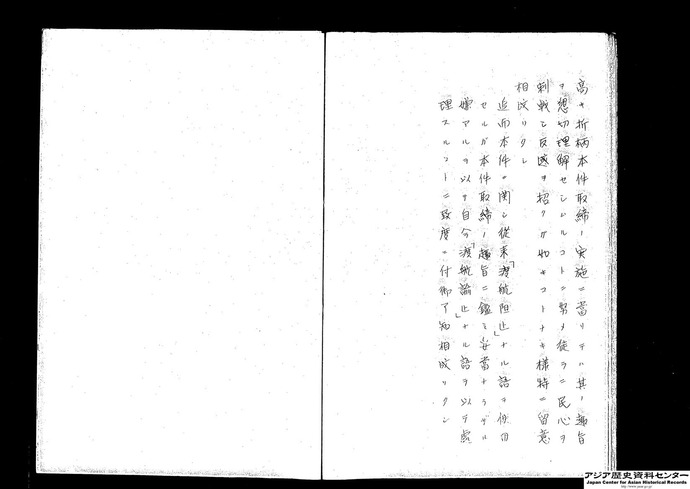 高キ折柄本件取締ノ実施ニ當リテハ其ノ趣旨
ヲ懇切理解セシムルコトニ努メ徒ラニ民心ヲ
刺戟シ反感ヲ招クガ如キコトナキ様特ニ留意
相成リタシ
追而本件ニ関シ従来「渡航阻止」ナル語ヲ使用
セルガ本件取締ノ趣旨ニ鑑ミ妥當ナラザル
嫌アルヲ以テ自今「渡航諭止」ナル語ヲ以テ處
理スルコトニ致度ニ付御了知相成リタシ
アジア歴史資料センター
Japan Center for Asian Historical Records